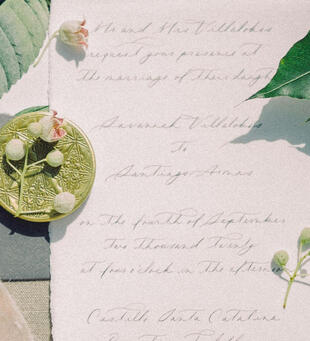 Mr and Mrs Villalobos
request your presence at
the marriage of their daught
Savannah Villalobos
To
Santiago
on the fourth of September
Two Thousand Twenty
at four o'clock in the afternoon
Castillo Santa Catalina